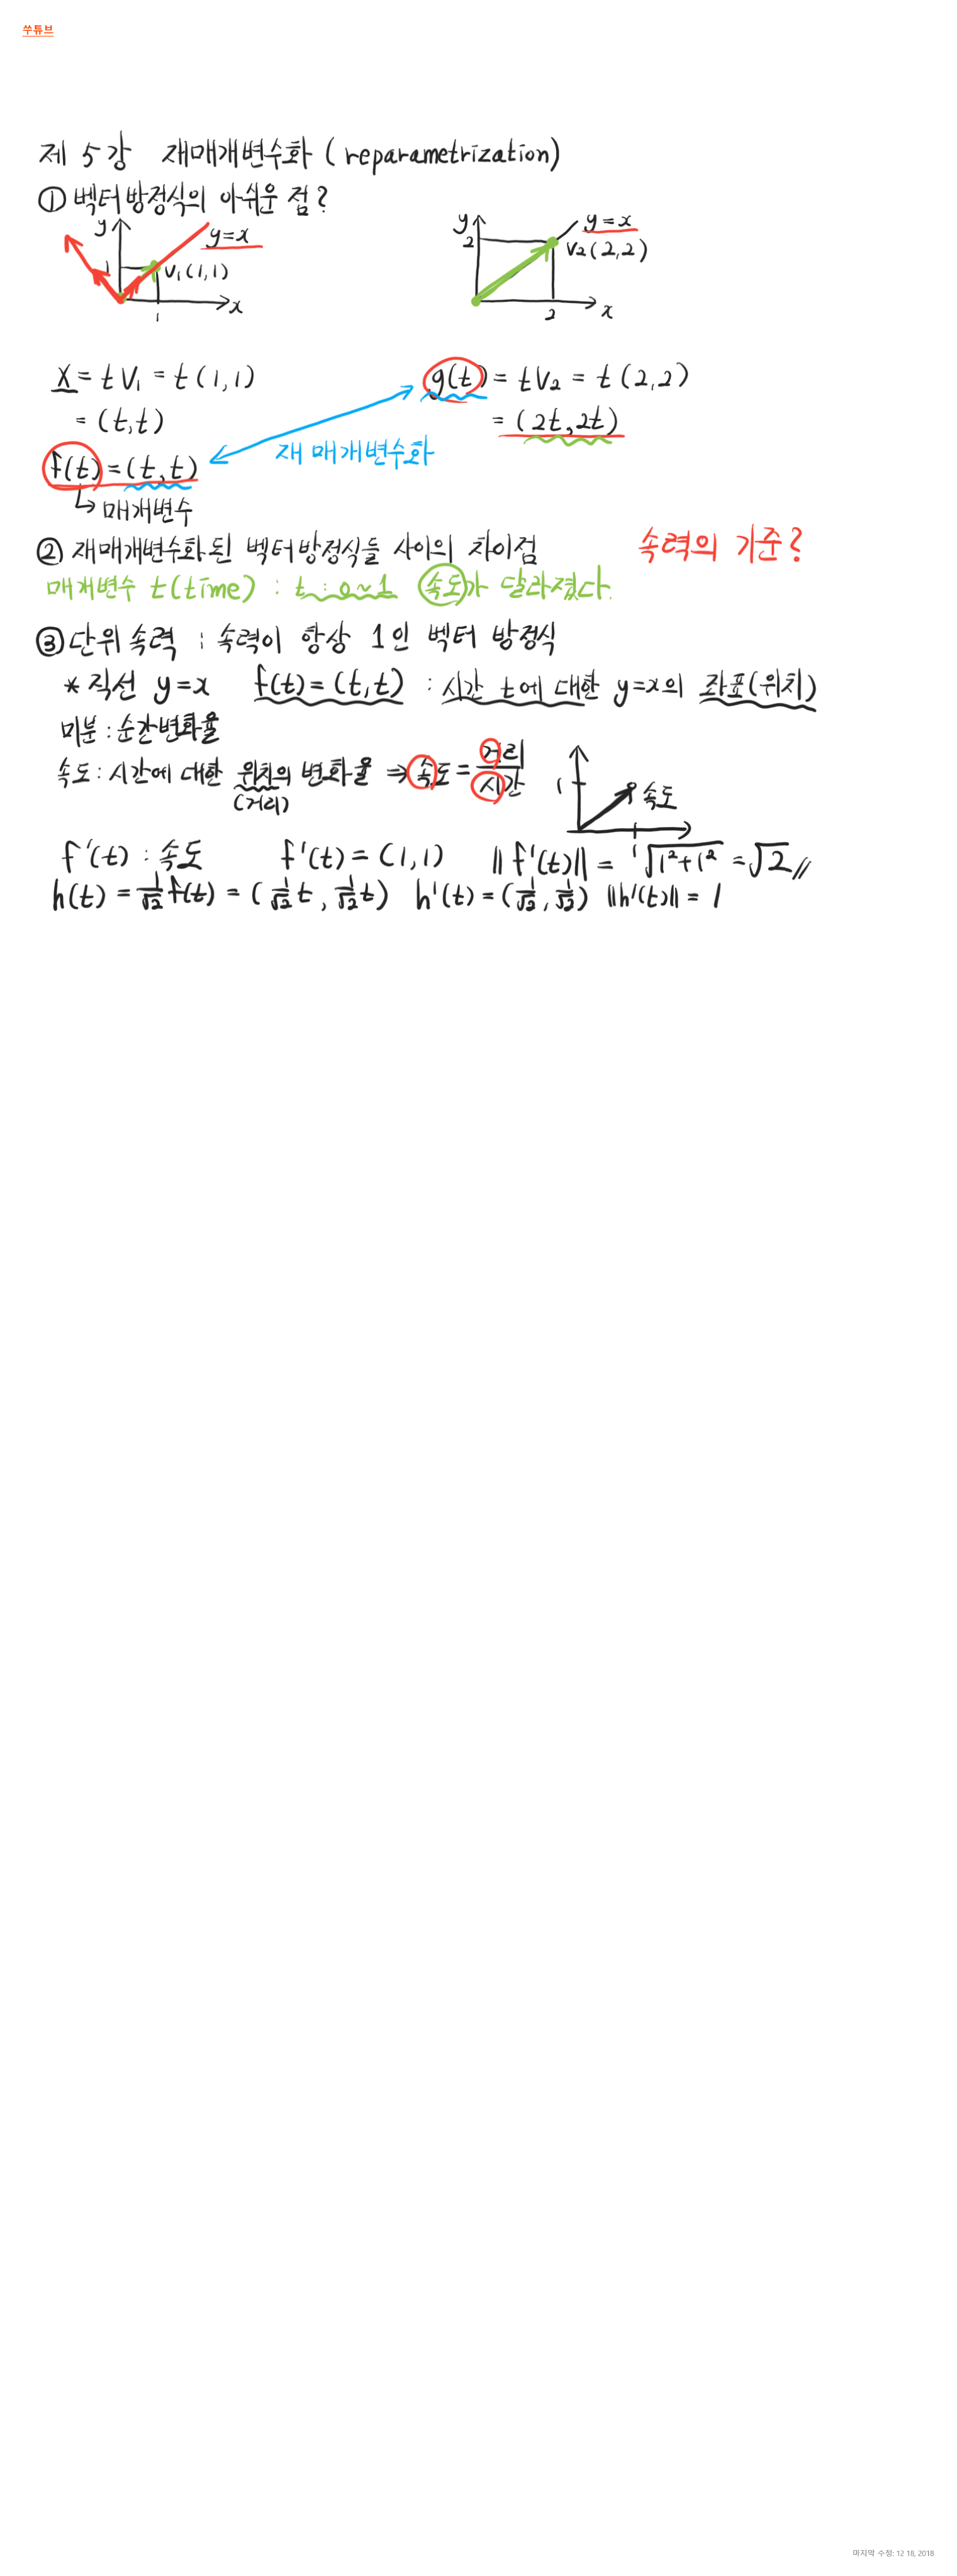 쑤튜브
제 5강 재매개변수화 (reparametrization)
① 벡터방정식의 아쉬운 점?
y
y=x
1
V₁(1,1)
1
x
y
y=x
2
V₂(2,2)
2
x
X = tV₁ = t(1,1)
= (t,t)
f(t) = (t,t)
↳ 매개변수
g(t) = tV₂ = t(2,2)
= (2t,2t)
재 매개변수화
② 재매개변수화 된 벡터방정식들 사이의 차이점
속력의 기준?
매개변수 t(time) : t : 0~1 속도가 달라졌다.
③ 단위속력 : 속력이 항상 1인 벡터 방정식
* 직선 y=x f(t) = (t,t) : 시간 t에 대한 y=x의 좌표(위치)
미분 : 순간변화율
속도 : 시간에 대한 위치의 변화율 ⇒ 속도 = 거리/시간
(거리)
1
속도
1
f'(t) : 속도 f'(t) = (1,1) ||f'(t)|| = √1²+1² = √2 //
h(t) = 1/√2 f(t) = (1/√2 t, 1/√2 t) h'(t) = (1/√2, 1/√2) ||h'(t)|| = 1
마지막 수정: 12 18, 2018